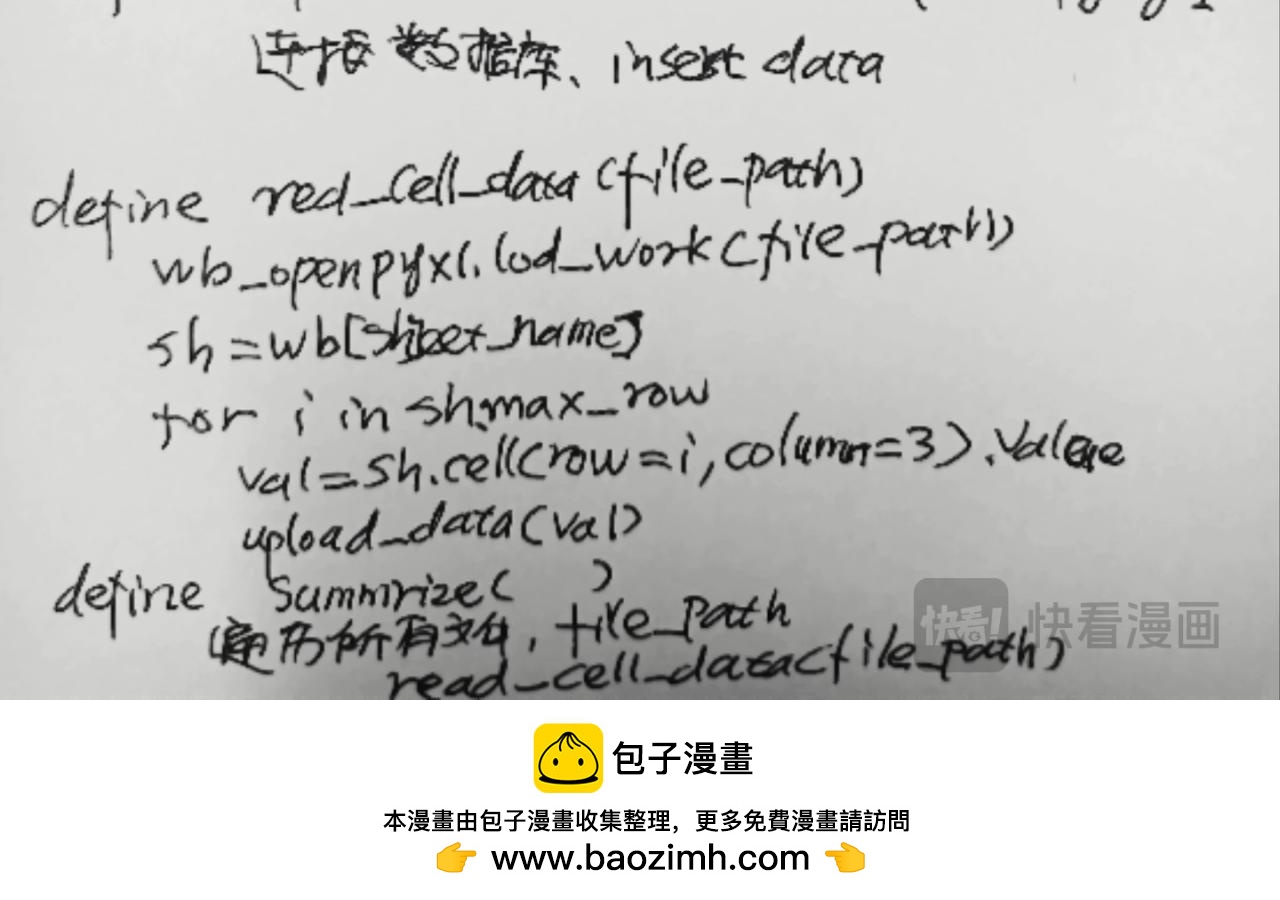 连接数据库、insert data
define red_cell_data (file_path)
wb_openpyxl.lod_work (file_path)
sh=wb[sheet_name]
for i in sh.max_row
val=sh.cell(row=i, column=3).value
upload_data(val)
define Summrize( )
遍历所有文件, file_path
read_cell_data(file_path)
快看! 快看漫画
包子漫畫
本漫畫由包子漫畫收集整理，更多免費漫畫請訪問
👉 www.baozimh.com 👈